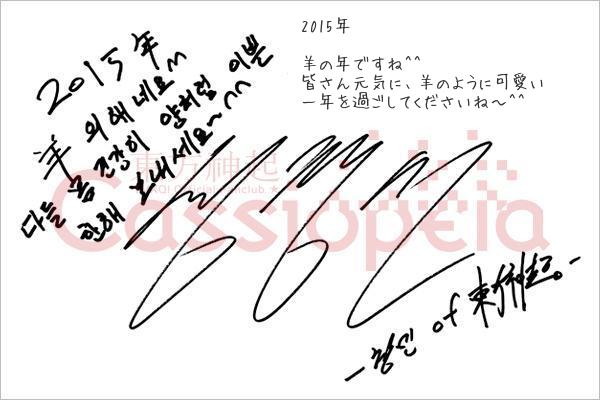 2015年
羊의 해네요~
다들 몸 건강히 양처럼 이쁜
한해 보내세요~^^
2015年
羊の年ですね^^
皆さん元気に、羊のように可愛い
一年を過ごしてくださいね～^^
東方神起
Official Fanclub ★
Cassiopeia
-창민 of 東方神起。-